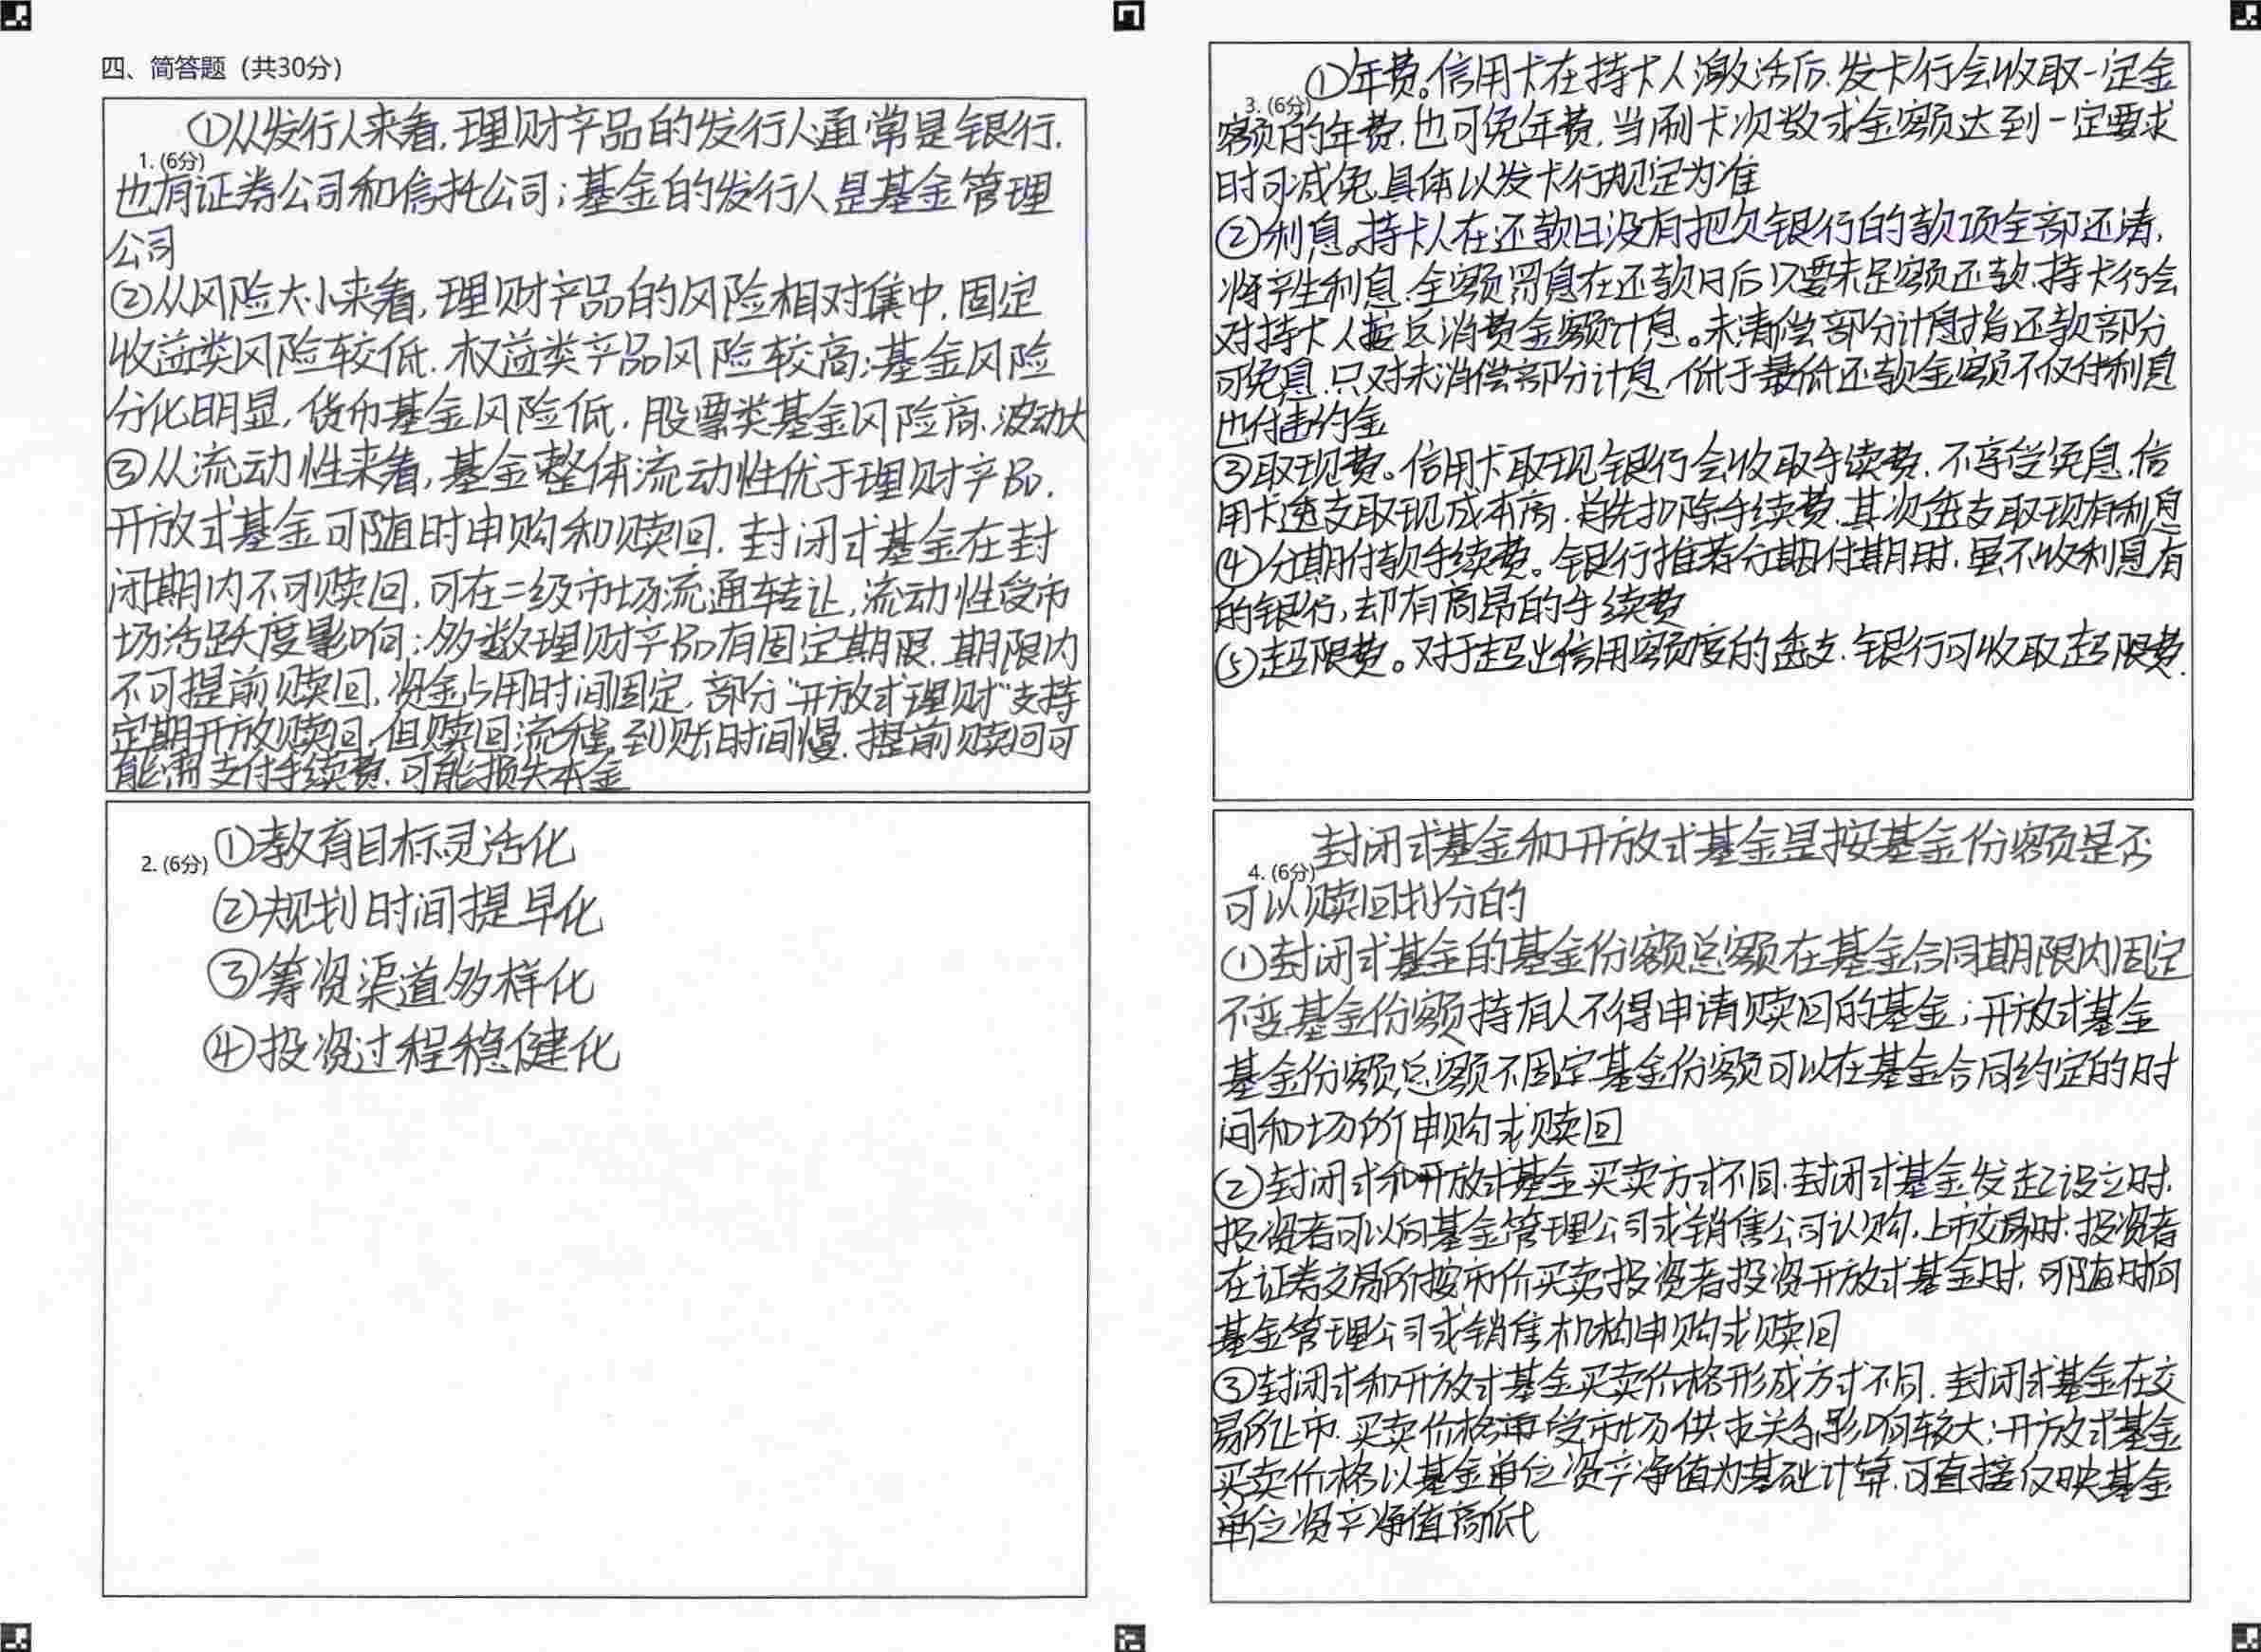 四、简答题（共30分）
①从发行人来看,理财产品的发行人通常是银行.
1. (6分)
也有证券公司和信托公司;基金的发行人是基金管理
公司
②从风险大小来看,理财产品的风险相对集中,固定
收益类风险较低.权益类产品风险较高;基金风险
分化明显,货币基金风险低,股票类基金风险高.波动大
③从流动性来看,基金整体流动性优于理财产品.
开放式基金可随时申购和赎回.封闭式基金在封
闭期内不可赎回,可在二级市场流通转让,流动性受市
场活跃度影响;多数理财产品有固定期限.期限内
不可提前赎回,资金占用时间固定,部分“开放式理财”支持
定期开放赎回,但赎回流程,到账时间慢.提前赎回可
能需支付手续费.可能损失本金
①教育目标灵活化
2. (6分)
②规划时间提早化
③筹资渠道多样化
④投资过程稳健化
①年费。信用卡在持卡人激活后.发卡行会收取一定金
3. (6分)
额的年费.也可免年费.当刷卡次数或金额达到一定要求
时可减免具体以发卡行规定为准
②利息。持卡人在还款日没有把欠银行的款项全部还清,
将产生利息.全额罚息在还款日后只要未足额还款.持卡行会
对持卡人按总消费金额计息。未清偿部分计息指还款部分
可免息.只对未清偿部分计息,低于最低还款金额不仅付利息
也付违约金
③取现费。信用卡取现银行会收取手续费.不享受免息.信
用卡透支取现成本高.首先扣除手续费.其次透支取现有利息
④分期付款手续费。银行推荐分期付期时,虽不收利息有
的银行,却有高昂的手续费
⑤超限费。对于超出信用额度的透支.银行可收取超限费.
封闭式基金和开放式基金是按基金份额是否
4. (6分)
可以赎回划分的
①封闭式基金的基金份额总额在基金合同期限内固定
不变基金份额持有人不得申请赎回的基金;开放式基金
基金份额总额不固定基金份额可以在基金合同约定的时
间和场所申购或赎回
②封闭式和开放式基金买卖方式不同.封闭式基金发起设立时,
投资者可以向基金管理公司或销售公司认购,上市交易时.投资者
在证券交易所按市价买卖投资者投资开放式基金时,可随时向
基金管理公司或销售机构申购或赎回
③封闭式和开放式基金买卖价格形成方式不同.封闭式基金在交
易所上市.买卖价格受市场供求关系影响较大;开放式基金
买卖价格以基金单位资产净值为基础计算.可直接反映基金
单位资产净值高低